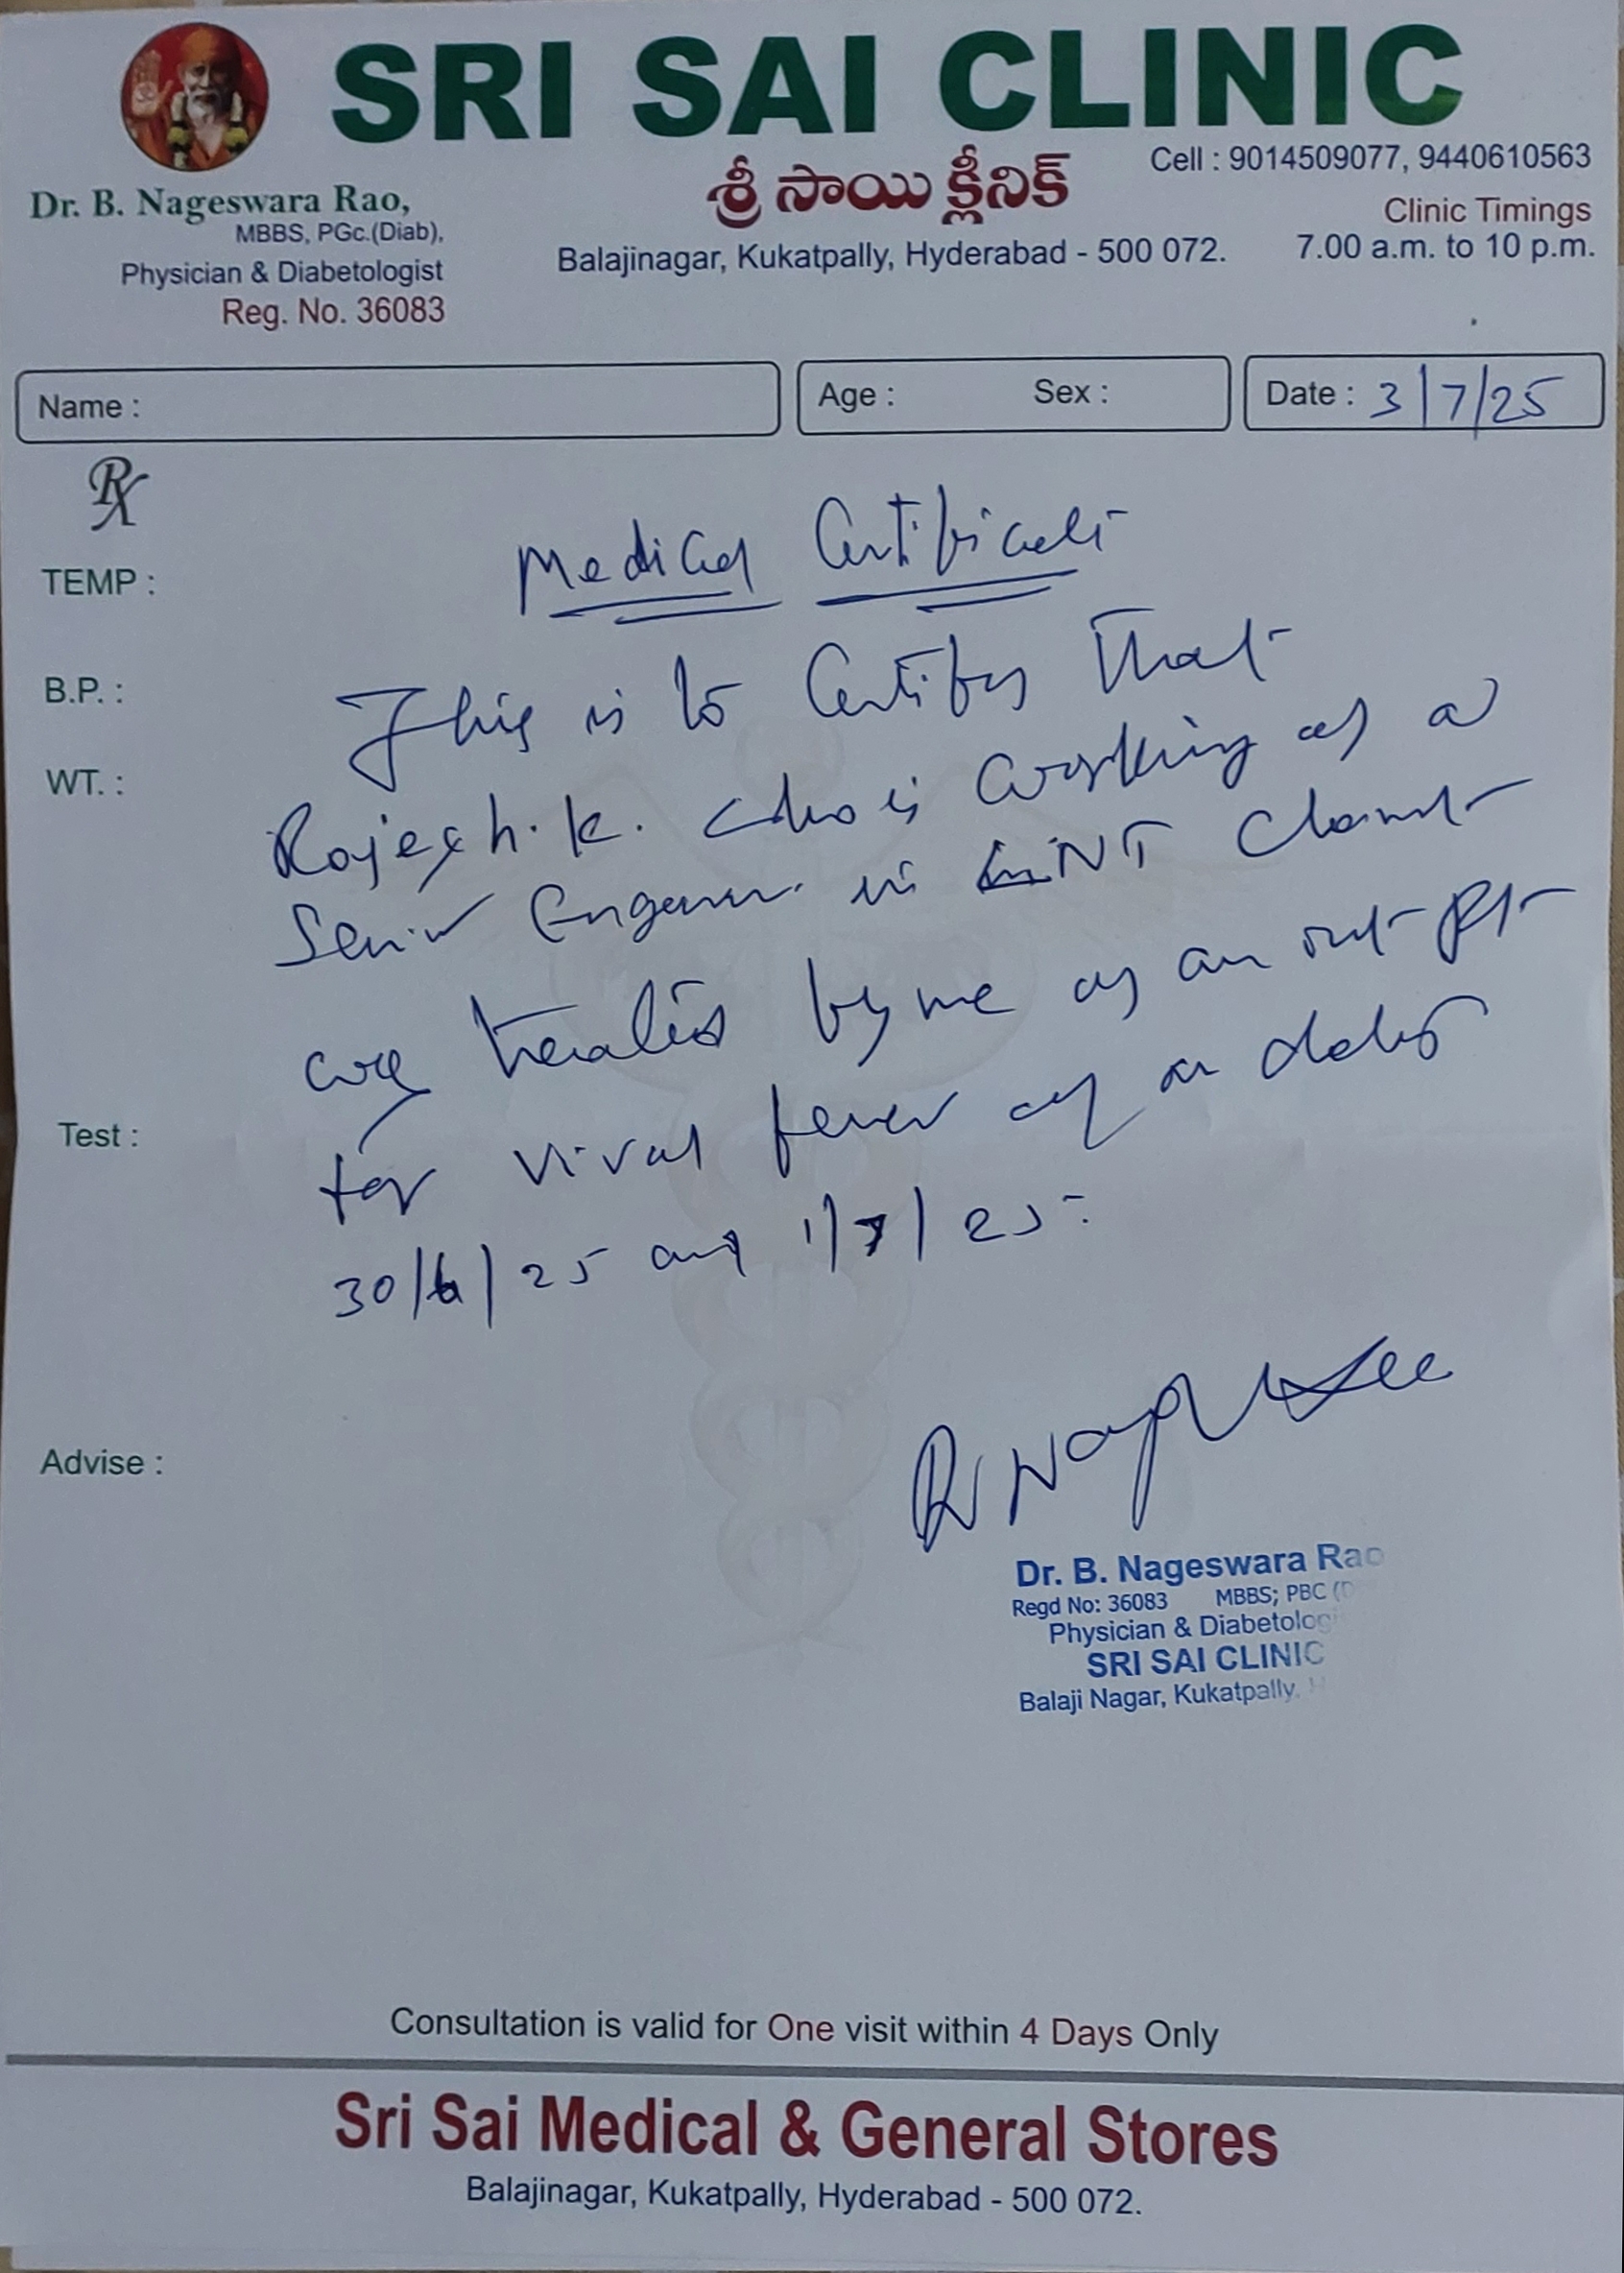 SRI SAI CLINIC
శ్రీ సాయి క్లినిక్
Cell : 9014509077, 9440610563
Dr. B. Nageswara Rao,
MBBS, PGc.(Diab),
Physician & Diabetologist
Reg. No. 36083
Balajinagar, Kukatpally, Hyderabad - 500 072.
Clinic Timings
7.00 a.m. to 10 p.m.
Name :
Age : Sex :
Date : 3/7/25
Rx
TEMP :
B.P. :
WT. :
Test :
Advise :
Medical Certificate
This is to Certify that
Rajesh. K. who is working as a
Senior Engineer in
treated by me as an out Pt
for viral fever on dates
30/6/25 and 1/7/25.
Dr. B. Nageswara Rao
Regd No: 36083 MBBS; PBC (D
Physician & Diabetologi
SRI SAI CLINIC
Balaji Nagar, Kukatpally, H
Consultation is valid for One visit within 4 Days Only
Sri Sai Medical & General Stores
Balajinagar, Kukatpally, Hyderabad - 500 072.